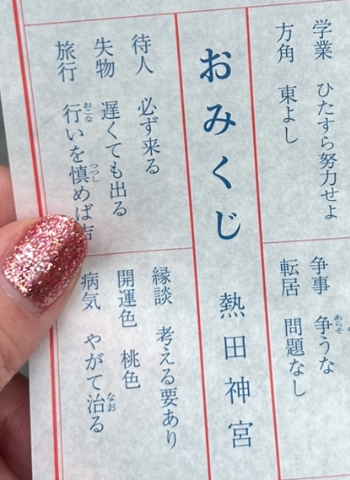 学業 ひたすら努力せよ
方角 東よし
争事 争うな
転居 問題なし
おみくじ 熱田神宮
待人 必ず来る
失物 遅くても出る
旅行 行いを慎めば吉
縁談 考える要あり
開運色 桃色
病気 やがて治る